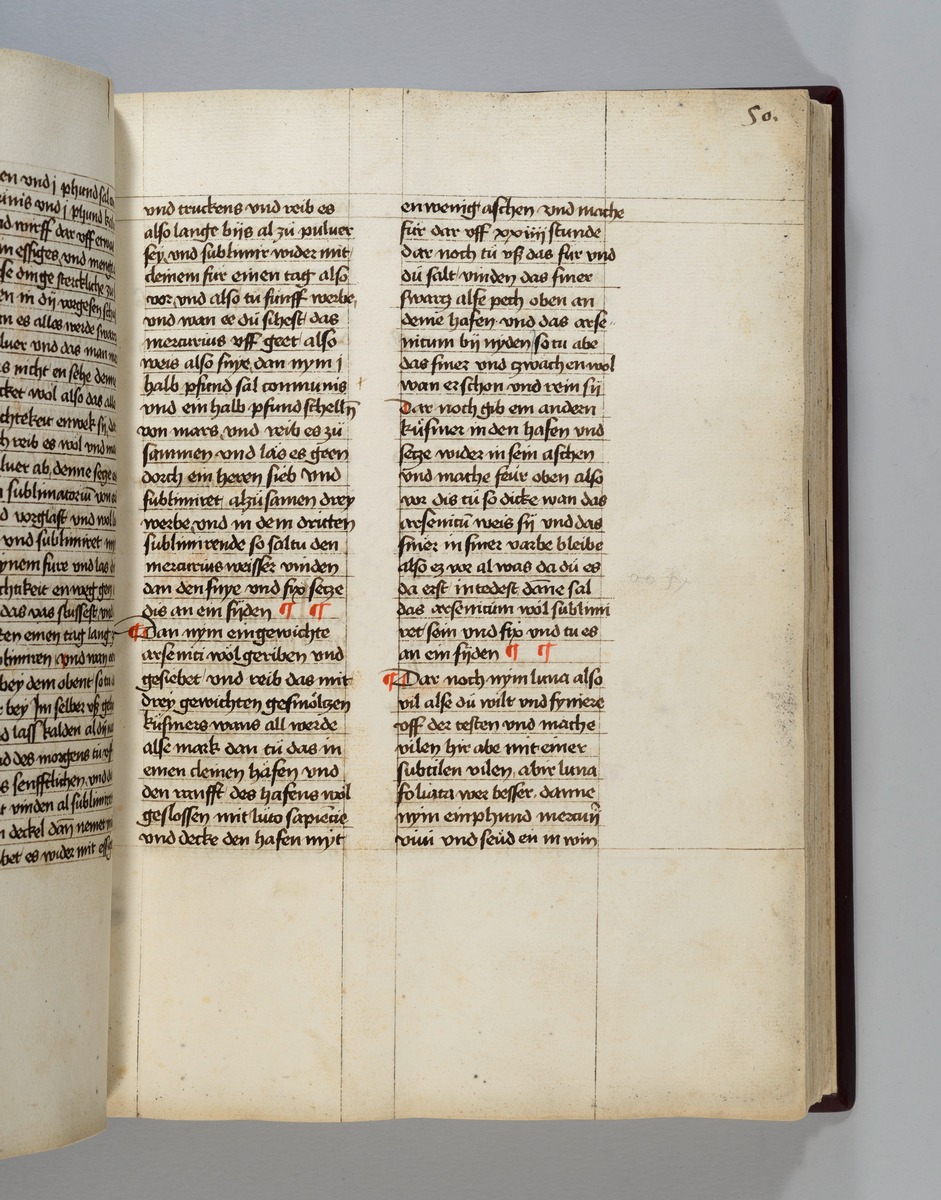 en vnd j phund sal
inis vnd j phund
d wirff dar vff
m essiges vnd meng
se dinge stercklich zu
en in dy vorgesen
n es alles werde swarcz
luer vnd das man
s nicht en sehe dem
cket wol also das
chtekeit enwek sy
h reib es wol vnd
luer ab denne secze
sublimatoriu von
d vorglast vnd wol
vnd sublimiret
ynem fure vnd las
chtikeit enweg gen
das vas stusset vnd
ten einen tag lang
blimiren vnd wan
bey dem obent so tu
bey Im selber vß
d lass kalden
d des morgens tu vf
s senfftlichen vnd
t vinden al sublimi
deckel dan nemet
bet es wider mit essig
50.
vnd truckens vnd reib es
also lange bijs al zu puluer
sey vnd sublimir wider mit
cleinem fur einen tag also
vor vnd also tu funff werbe
vnd wan ee du sihest das
mercurius vff geet also
weis also snye dan nym j
halb pfund sal communis
vnd ein halb pfund schelln
von mars vnd reib es zu
sammen vnd las es geen
dorch ein heren sieb vnd
sublimiret alzu samen drey
werbe vnd in dem dritten
sublimirende so saltu den
mercurius weisser vinden
dan den snye vnd fyx secze
dis an ein syden ¶ ¶
¶ Dan nym ein gewichte
arsenici wol geriben vnd
gesiebet vnd reib das mit
drey gewichten gesmolczen
kusmers wans all werde
alse mark dan tu das in
einen cleinen hafen vnd
den ranfft des hafens wol
geslossen mit luto sapiencie
vnd decke den hafen myt
en wenig aschen vnd mache
für dar vff xxiiij stunde
dar noch tu vß das fur vnd
du salt vinden das smer
swarcz alse pech oben an
deme hafen vnd das arse-
nicum bij nyden so tu abe
das smer vnd czwachen wol
wan er schon vnd rein sij
Dar noch gib em andern
kusmer in den hafen vnd
secze wider in sein aschen
vnd mache feur oben also
vor dis tu so dicke wan das
arsenicu weis sij vnd das
smer in smer varbe bleibe
also ez vor al was da du es
da erst intedest danne sal
das arsenicum wol sublimi
ret sein vnd fix vnd tu es
an em syden ¶ ¶
¶ Dar noch nym luna also
vil alse du wilt vnd fymere
vff der testen vnd mache
vilen hir abe mit einer
subtilen vilen abir luna
foliata wer besser danne
nym ein phund mercurij
viui vnd seud en in win